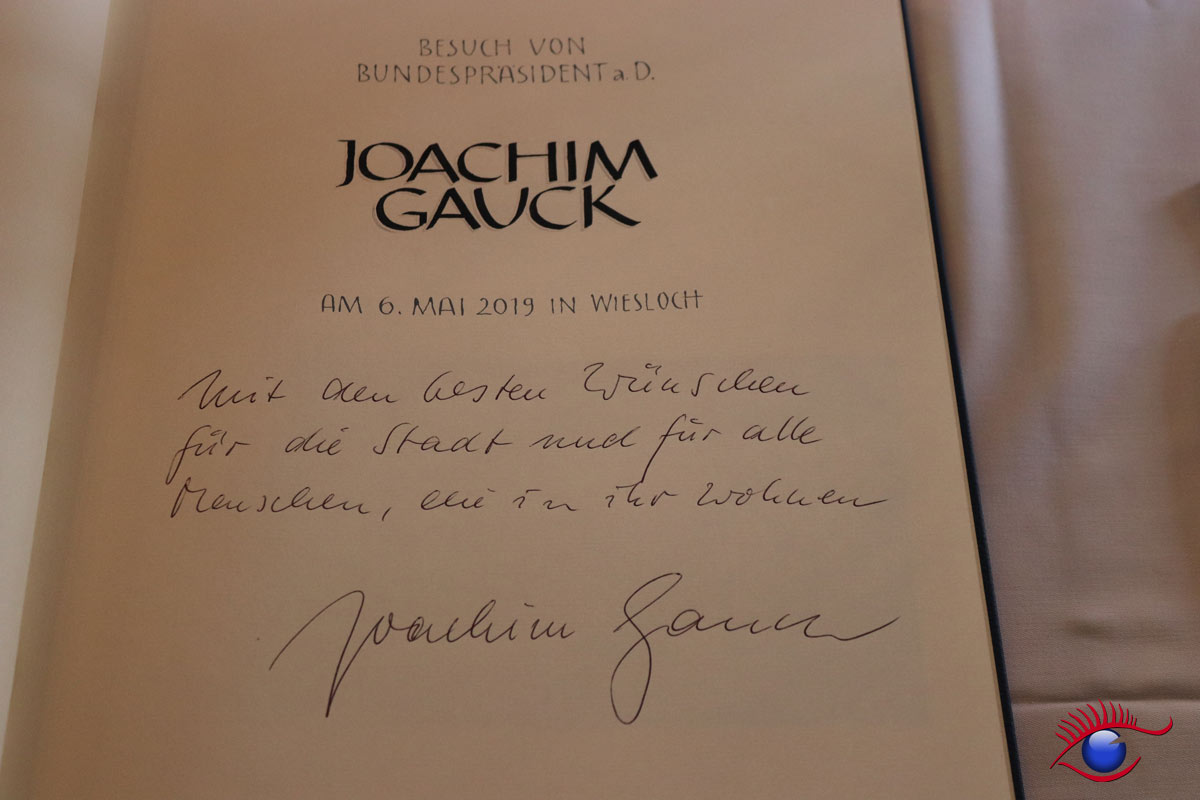 BESUCH VON
BUNDESPRÄSIDENT a.D.
JOACHIM
GAUCK
AM 6. MAI 2019 IN WIESLOCH
Mit den besten Wünschen
für die Stadt und für alle
Menschen, die in ihr wohnen
Joachim Gauck